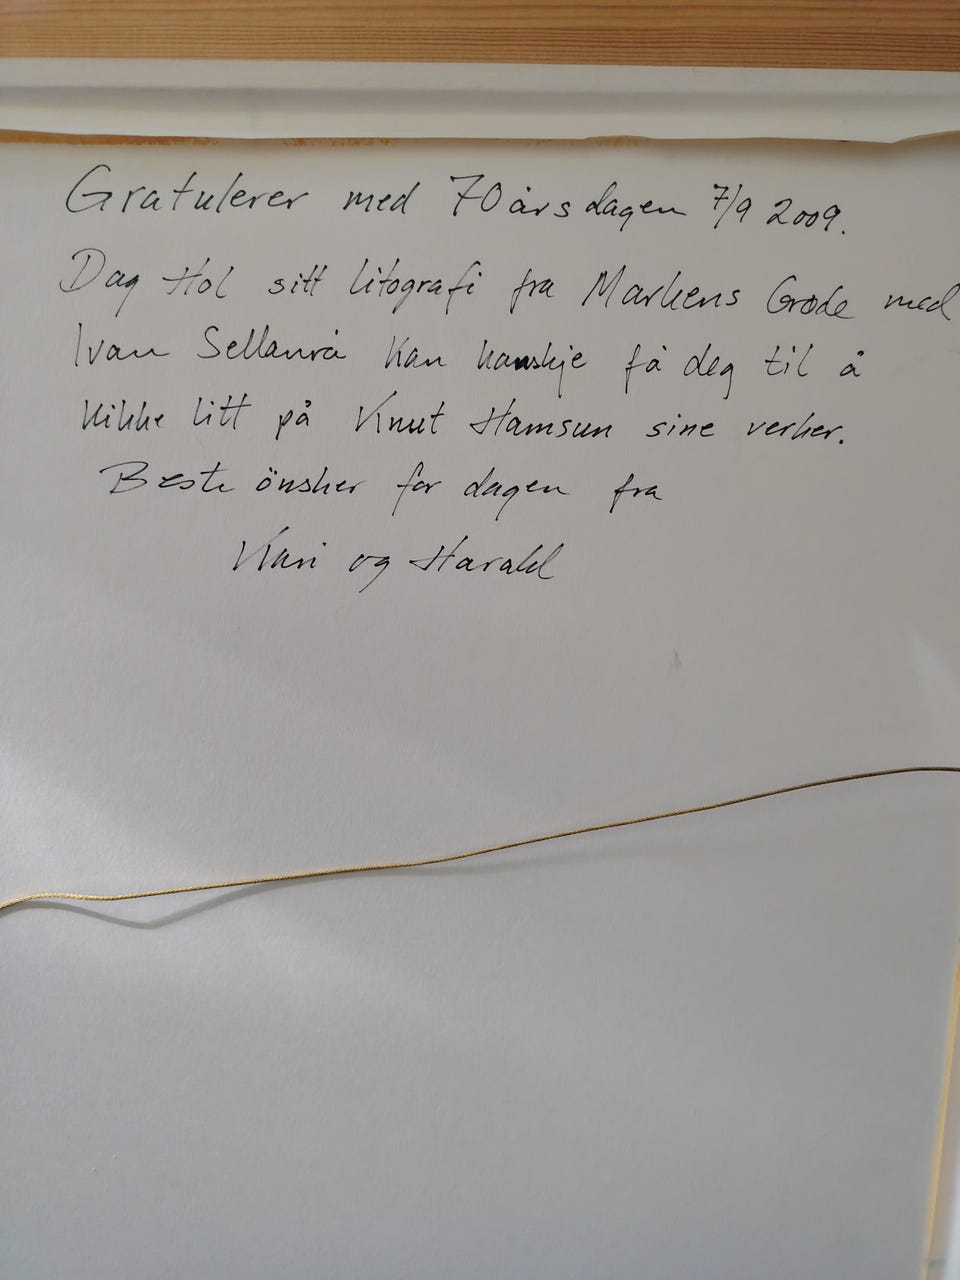 Gratulerer med 70årsdagen 7/9 2009.
Dag Hol sitt litografi fra Markens Grøde med
Ivan Sellanrå kan kanskje få deg til å
kikke litt på Knut Hamsun sine verker.
Beste önsker for dagen fra
Kari og Harald